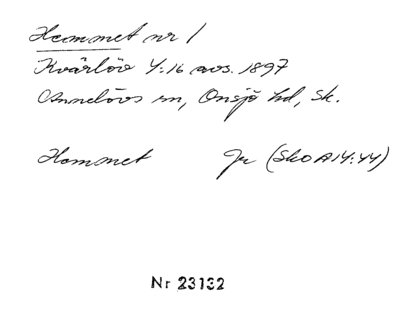 Hemmet nr 1
Kvärlöv 4:16 avs. 1897
Annelövs sn, Onsjö hd, Sk.
Hemmet Jr (SkO A14:44)
Nr 23132